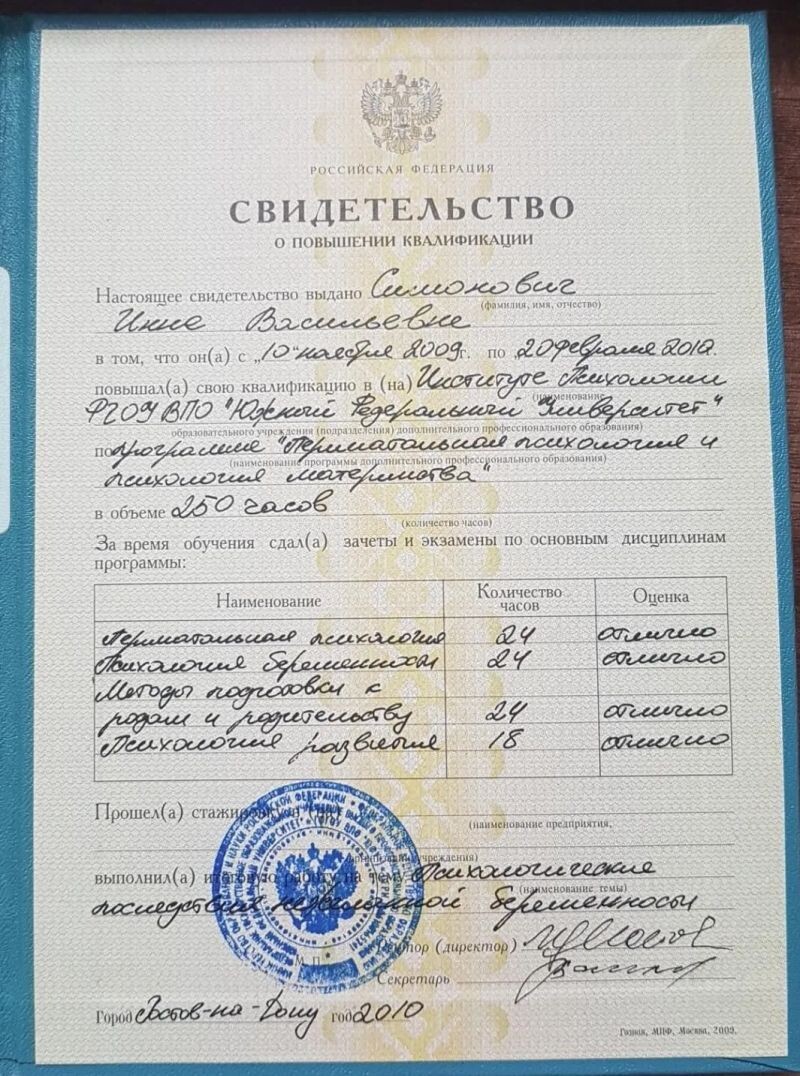 РОССИЙСКАЯ ФЕДЕРАЦИЯ
СВИДЕТЕЛЬСТВО
О ПОВЫШЕНИИ КВАЛИФИКАЦИИ
Настоящее свидетельство выдано Симонович
(фамилия, имя, отчество)
Инне Васильевне
в том, что он(а) с „10" ноября 2009г. по „20 февраля 2010.
повышал(а) свою квалификацию в (на) Институте Психологии
(наименование
ФГОУ ВПО "Южный Федеральный Университет"
образовательного учреждения (подразделения) дополнительного профессионального образования)
по программе "Перинатальная психология и
(наименование программы дополнительного профессионального образования)
психология материнства"
в объеме 250 часов
(количество часов)
За время обучения сдал(а) зачеты и экзамены по основным дисциплинам
программы:
Наименование Количество часов Оценка
Перинатальная психология 24 отлично
Психология беременности 24 отлично
Методы подготовки к
родам и родительству 24 отлично
Психология развития 18 отлично
Прошел(а) стажировку в (на)
(наименование предприятия,
организации, учреждения)
выполнил(а) итоговую работу на тему Психологические
(наименование темы)
последствия нежеланной беременности
Ректор (директор)
М. П.
Секретарь
Город Ростов-на-Дону год 2010
Гознак, МПФ, Москва, 2009.